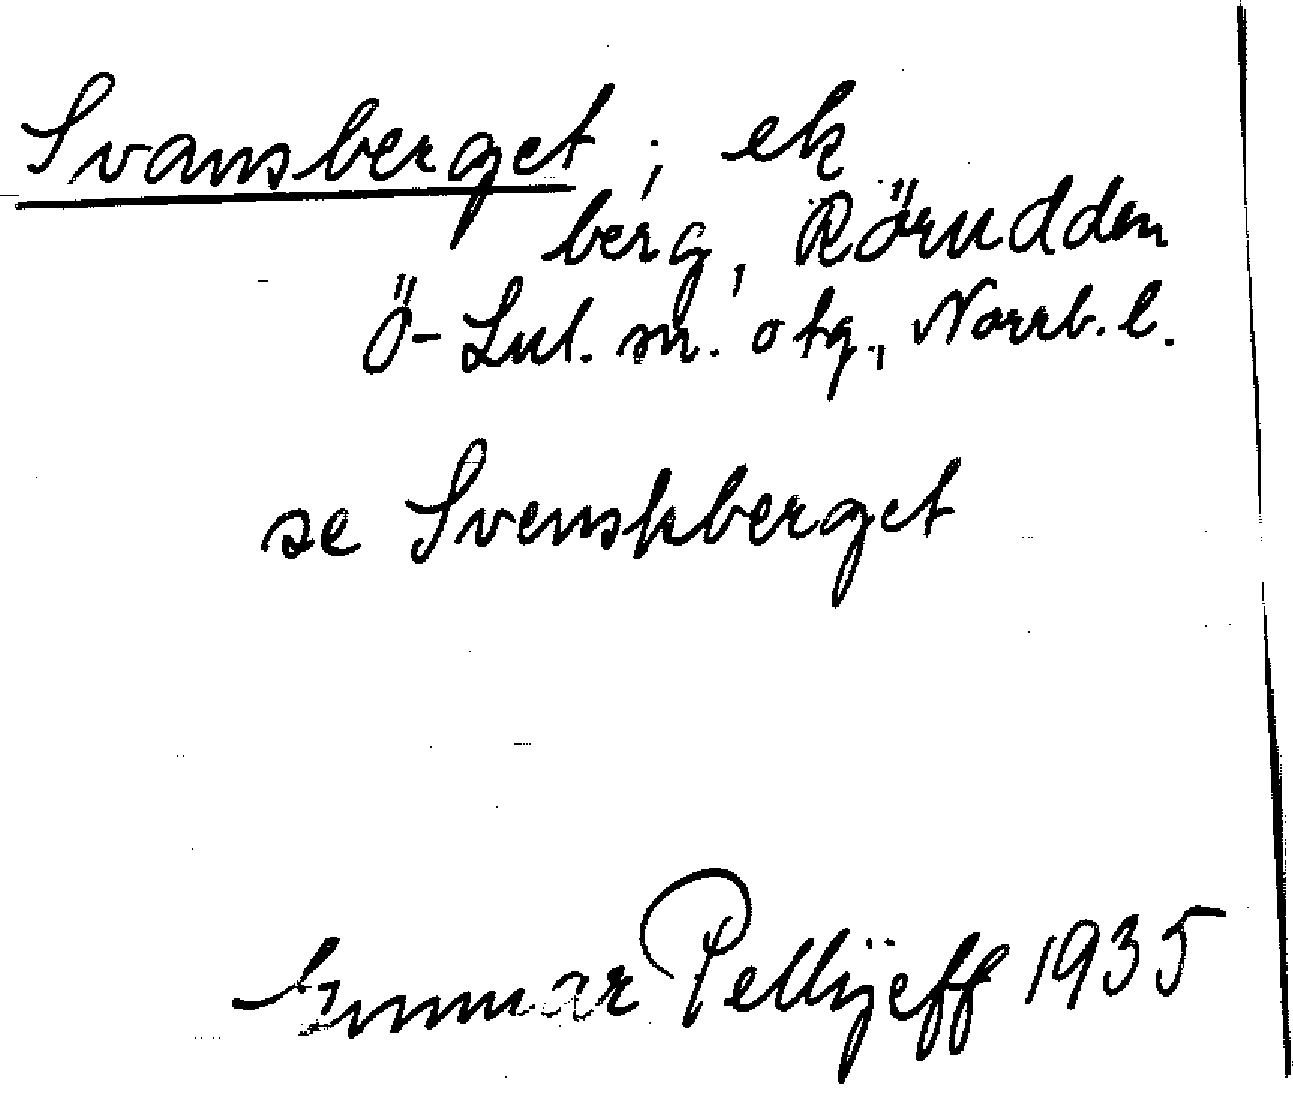 Svansberget ; ek
berg, Rörudden
Ö-Lul. sn. o tg., Norrb. l.
se Svenskberget
Gunnar Pellijeff 1935